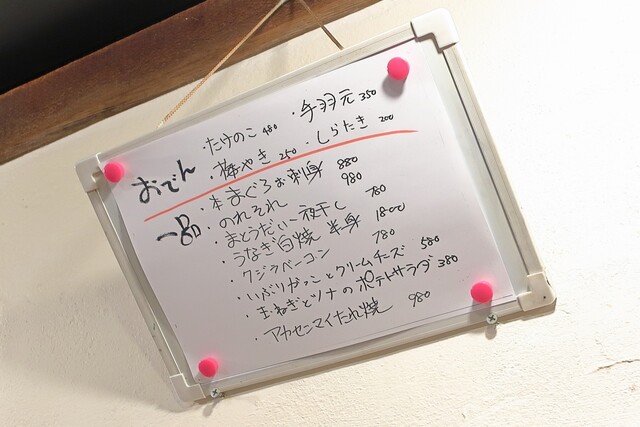 おでん
・たけのこ 480 ・手羽元 350
・棒やき 250 ・しらたき 200
一品
・本まぐろお刺身 880
・のれそれ 980
・まとうだい一夜干し 780
・うなぎ白焼 半身 1800
・クジラベーコン 780
・いぶりがっことクリームチーズ 580
・玉ねぎとツナのポテトサラダ 380
・アカセンマイたれ焼 980